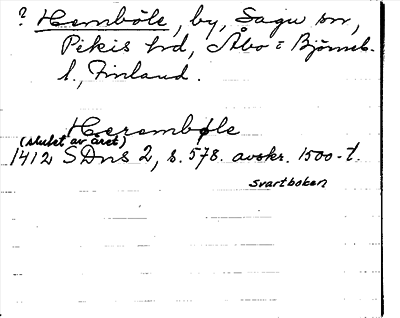 ? Hemböle, by, Sagu sn,
Pikis hd, Åbo o Björneb.
l., Finland.
Herembøle
(slutet av året)
1412 SDns 2, s. 578. avskr. 1500-t.
svartboken